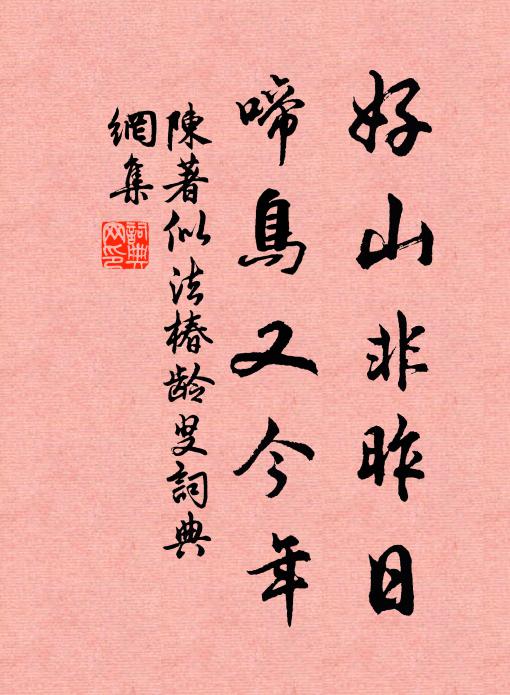 好山非昨日
啼鳥又今年
陳著似法椿龄叟詞典
網集
詞典
网印